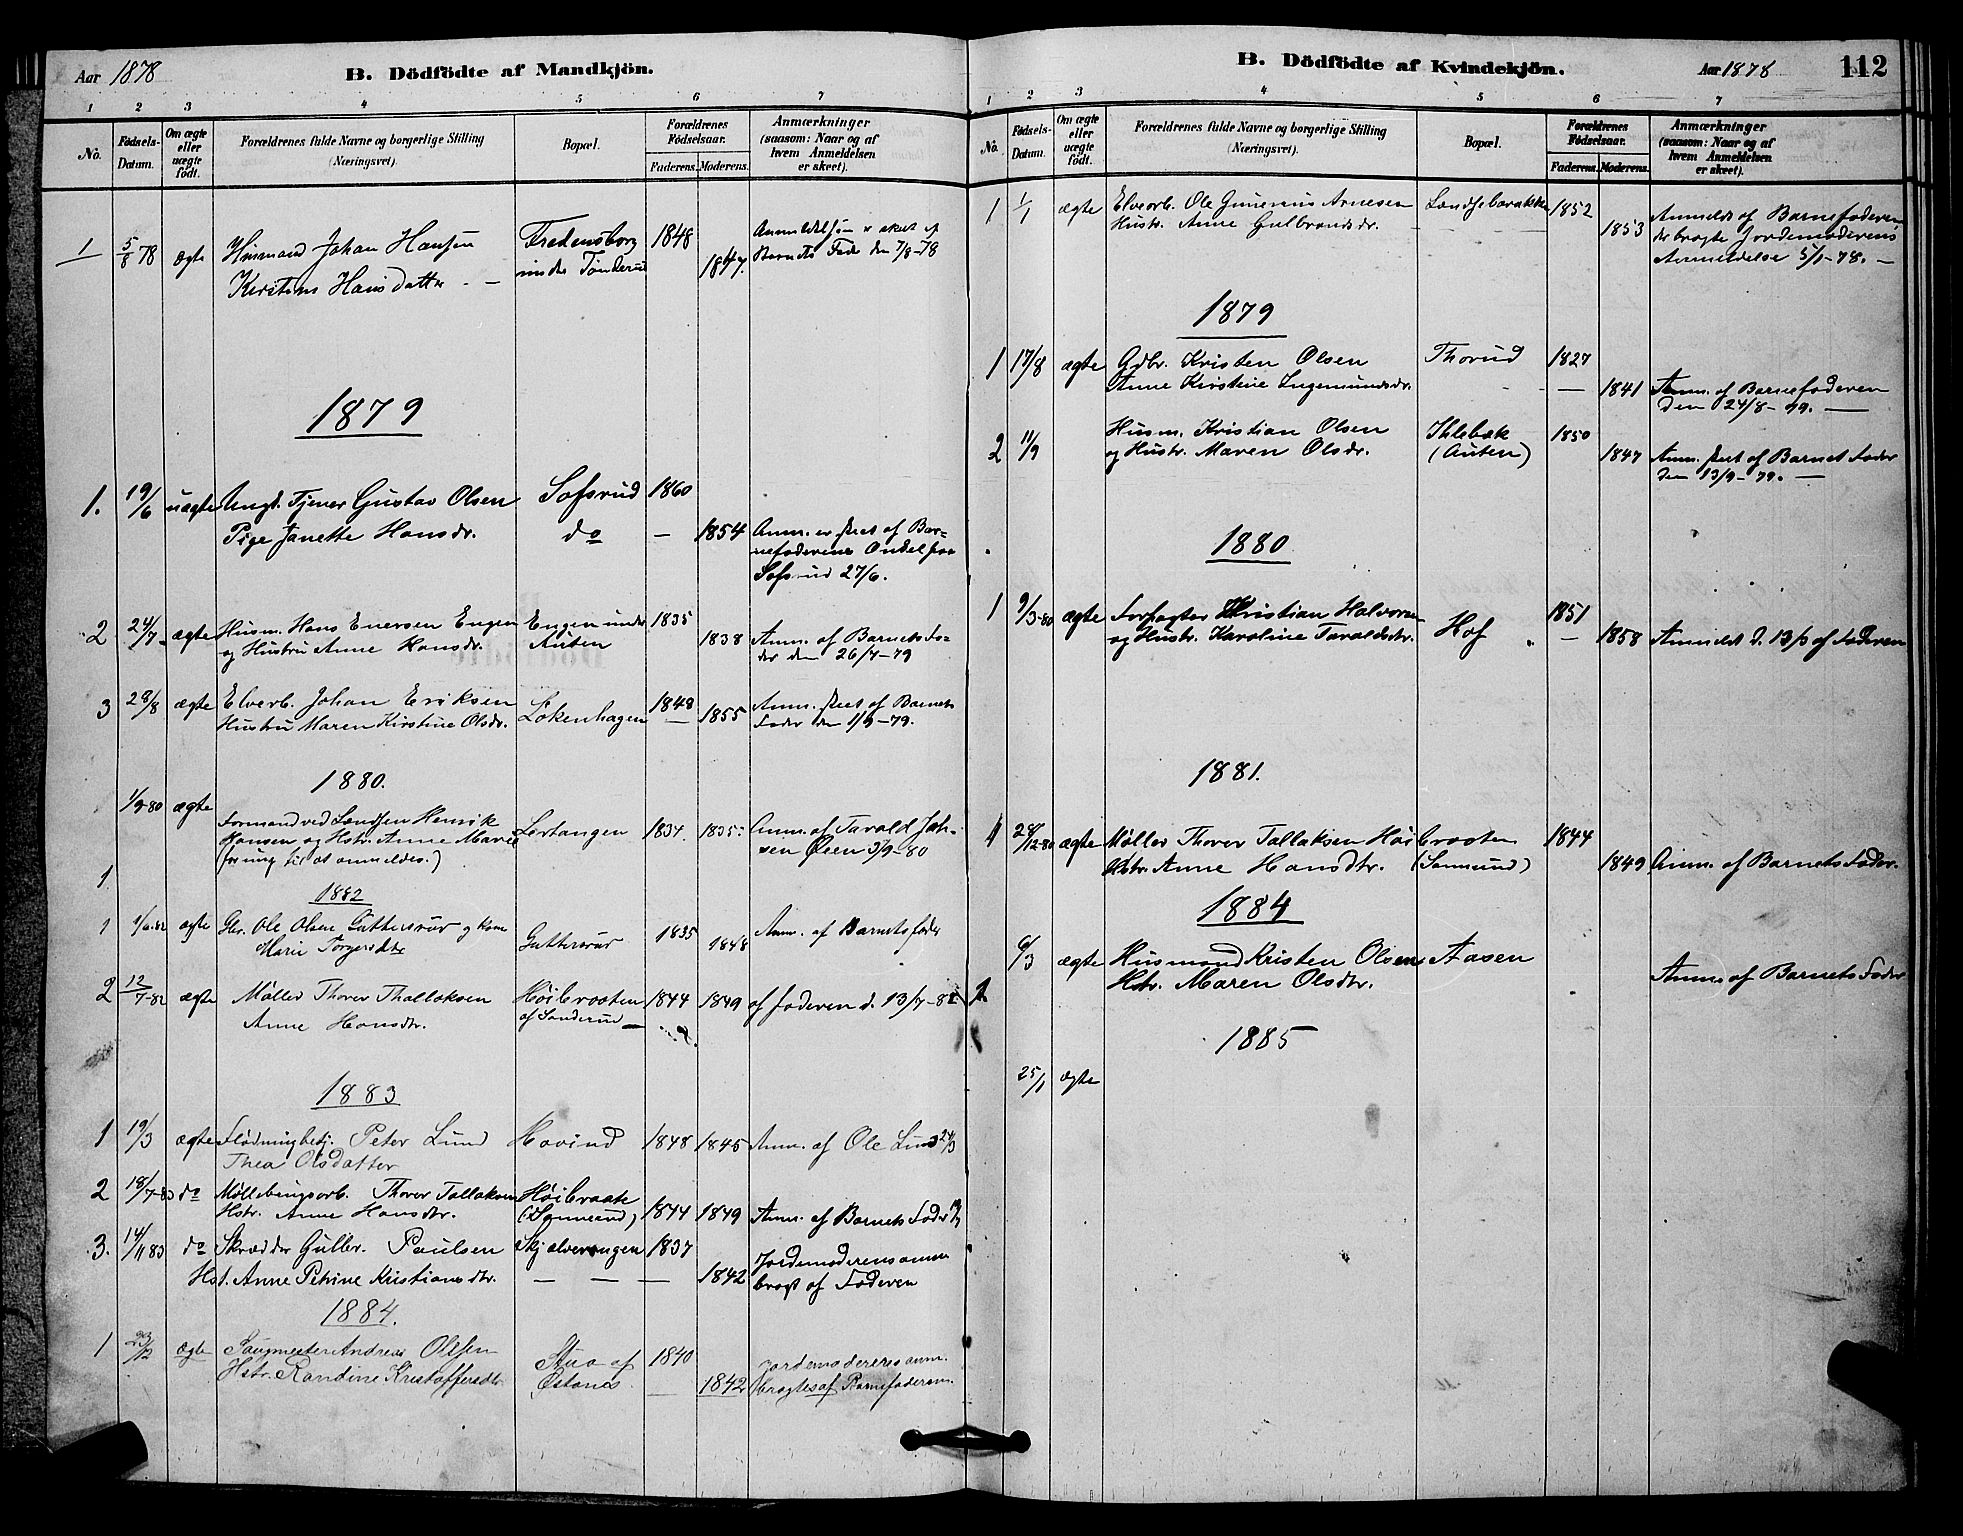 Aar 1878
B. Dödfödte af Mandkjön.
1 2 3 4 5 6 7
No.
Fødsels-Datum.
Om ægte eller uægte født.
Forældrenes fulde Navne og borgerlige Stilling (Næringsvei).
Bopæl.
Forældrenes Fødselsaar.
Faderens. Moderens.
Anmærkninger (saasom: Naar og af hvem Anmeldelsen er skeet).
1 5/8 78 ægte Husmand Johan Hansen Fredensborg 1848 Anmeldelsen er skeet af
Kirsten Hansdatter under Tønderud 1847. Barnets Fader den 7/8-78
1879
1. 19/6 uægte Ungk. Tjener Gustav Olsen Sofsrud 1860
Pige Janette Hansdr. do — 1854 Anm. er skeet af Bar-
nefaderens Onkel
Sofsrud 27/6.
2 24/7 ægte Husm. Hans Enersen Engen Engen under 1835
og Hustru Anne Hansdr. Auten 1838 Anm. af Barnets Fa-
der den 26/7-79
3 28/8 ægte Elverb. Johan Eriksen Løkenhagen 1848 Anm. skeet af Barnets
Hustru Maren Kirstine Olsdr. — 1855 Fader den 1/9-79.
1880.
1/9-80 ægte
Formand ved Landsen Henrik
Hansen og Hstr. Anne Marie Lertangen 1834. 1835 Anm. af Tarald Jah-
(for ung til at anmeldes.) sen Øien 3/9-80
1
1882
1 1/6-82 ægte Gbr. Ole Olsen Guttersrud og kone Guttersrud 1835 1848 Anm. af Barnets fader
Marie Torgersdtr
2 12/7-82 ægte Møller Thorer Thallaksen Høibraaten 1844 1849 af faderen d. 13/7-82
Anne Hansdtr. af Sanderud
1883
1 19/3 ægte Flødningbetj. Peter Lund Hovind 1848 1845 Anm. af Ole Lund 24/3
Thea Olsdatter
2 18/7-83 do Møllebrugsarb. Thorer Tallaksen Høibraate
Hstr. Anne Hansdtr. 1844 1849 Anm. af Barnets Fader
3. 14/11 83 do Skrædder Gulbr. Paulsen Skjælverengen 1837 Jordemoderens anm.
Hst. Anne Petrine Kristiansdtr. — — — 1842 bragt af Faderen
1884.
1 23/12 ægte Saugmester Andreas Olssen Stua af 1840 Jordemoderens anm.
Hstr. Randine Kristoffersdtr. Østanes. — 1842 bragtes af Barnefaderen.
B. Dödfödte af Kvindekjön.
Aar 1878
112
1 2 3 4 5 6 7
No.
Fødsels-Datum.
Om ægte eller uægte født.
Forældrenes fulde Navne og borgerlige Stilling (Næringsvei).
Bopæl.
Forældrenes Fødselsaar.
Faderens. Moderens.
Anmærkninger (saasom: Naar og af hvem Anmeldelsen er skeet).
1 1/1 ægte Elvearb. Ole Gunerius Arnesen Landsebarakken 1852
Hustr. Anne Gulbrandsdr. — — 1853 Anmeldt af Barnefaderen
der bragte Jordemoderens
Anmeldelse 5/1-78. —
1879
1 17/8 ægte Gdbr. Kristen Olsen Thorud 1827
Anne Kirstine Ingemundsdr. — 1841 Anm. af Barnefaderen
den 24/8-79. —
2 11/9 Husm. Kristian Olsen Ihlebæk 1850
og Hustr. Maren Olsdr. (Auten) 1847 Anm. skeet af Barnets Fader
den 13/9-79. —
1880
1 9/3-80 ægte Forpagter Kristian Halvorsen Hof 1851
og Hustr. Karoline Taraldsdtr. — 1858 Anmeldt d. 13/3 af Faderen
1881.
1 28/12-80 ægte Møller Thorer Tallaksen Høibraaten 1844
Hstr. Anne Hansdtr. 1849 Anm. af Barnets Fader.
1884
1 6/3 ægte Husmand Kristen Olsen Aasen
Hstr. Maren Olsdtr. Anm. af Barnets Fader
1885
25/1 ægte